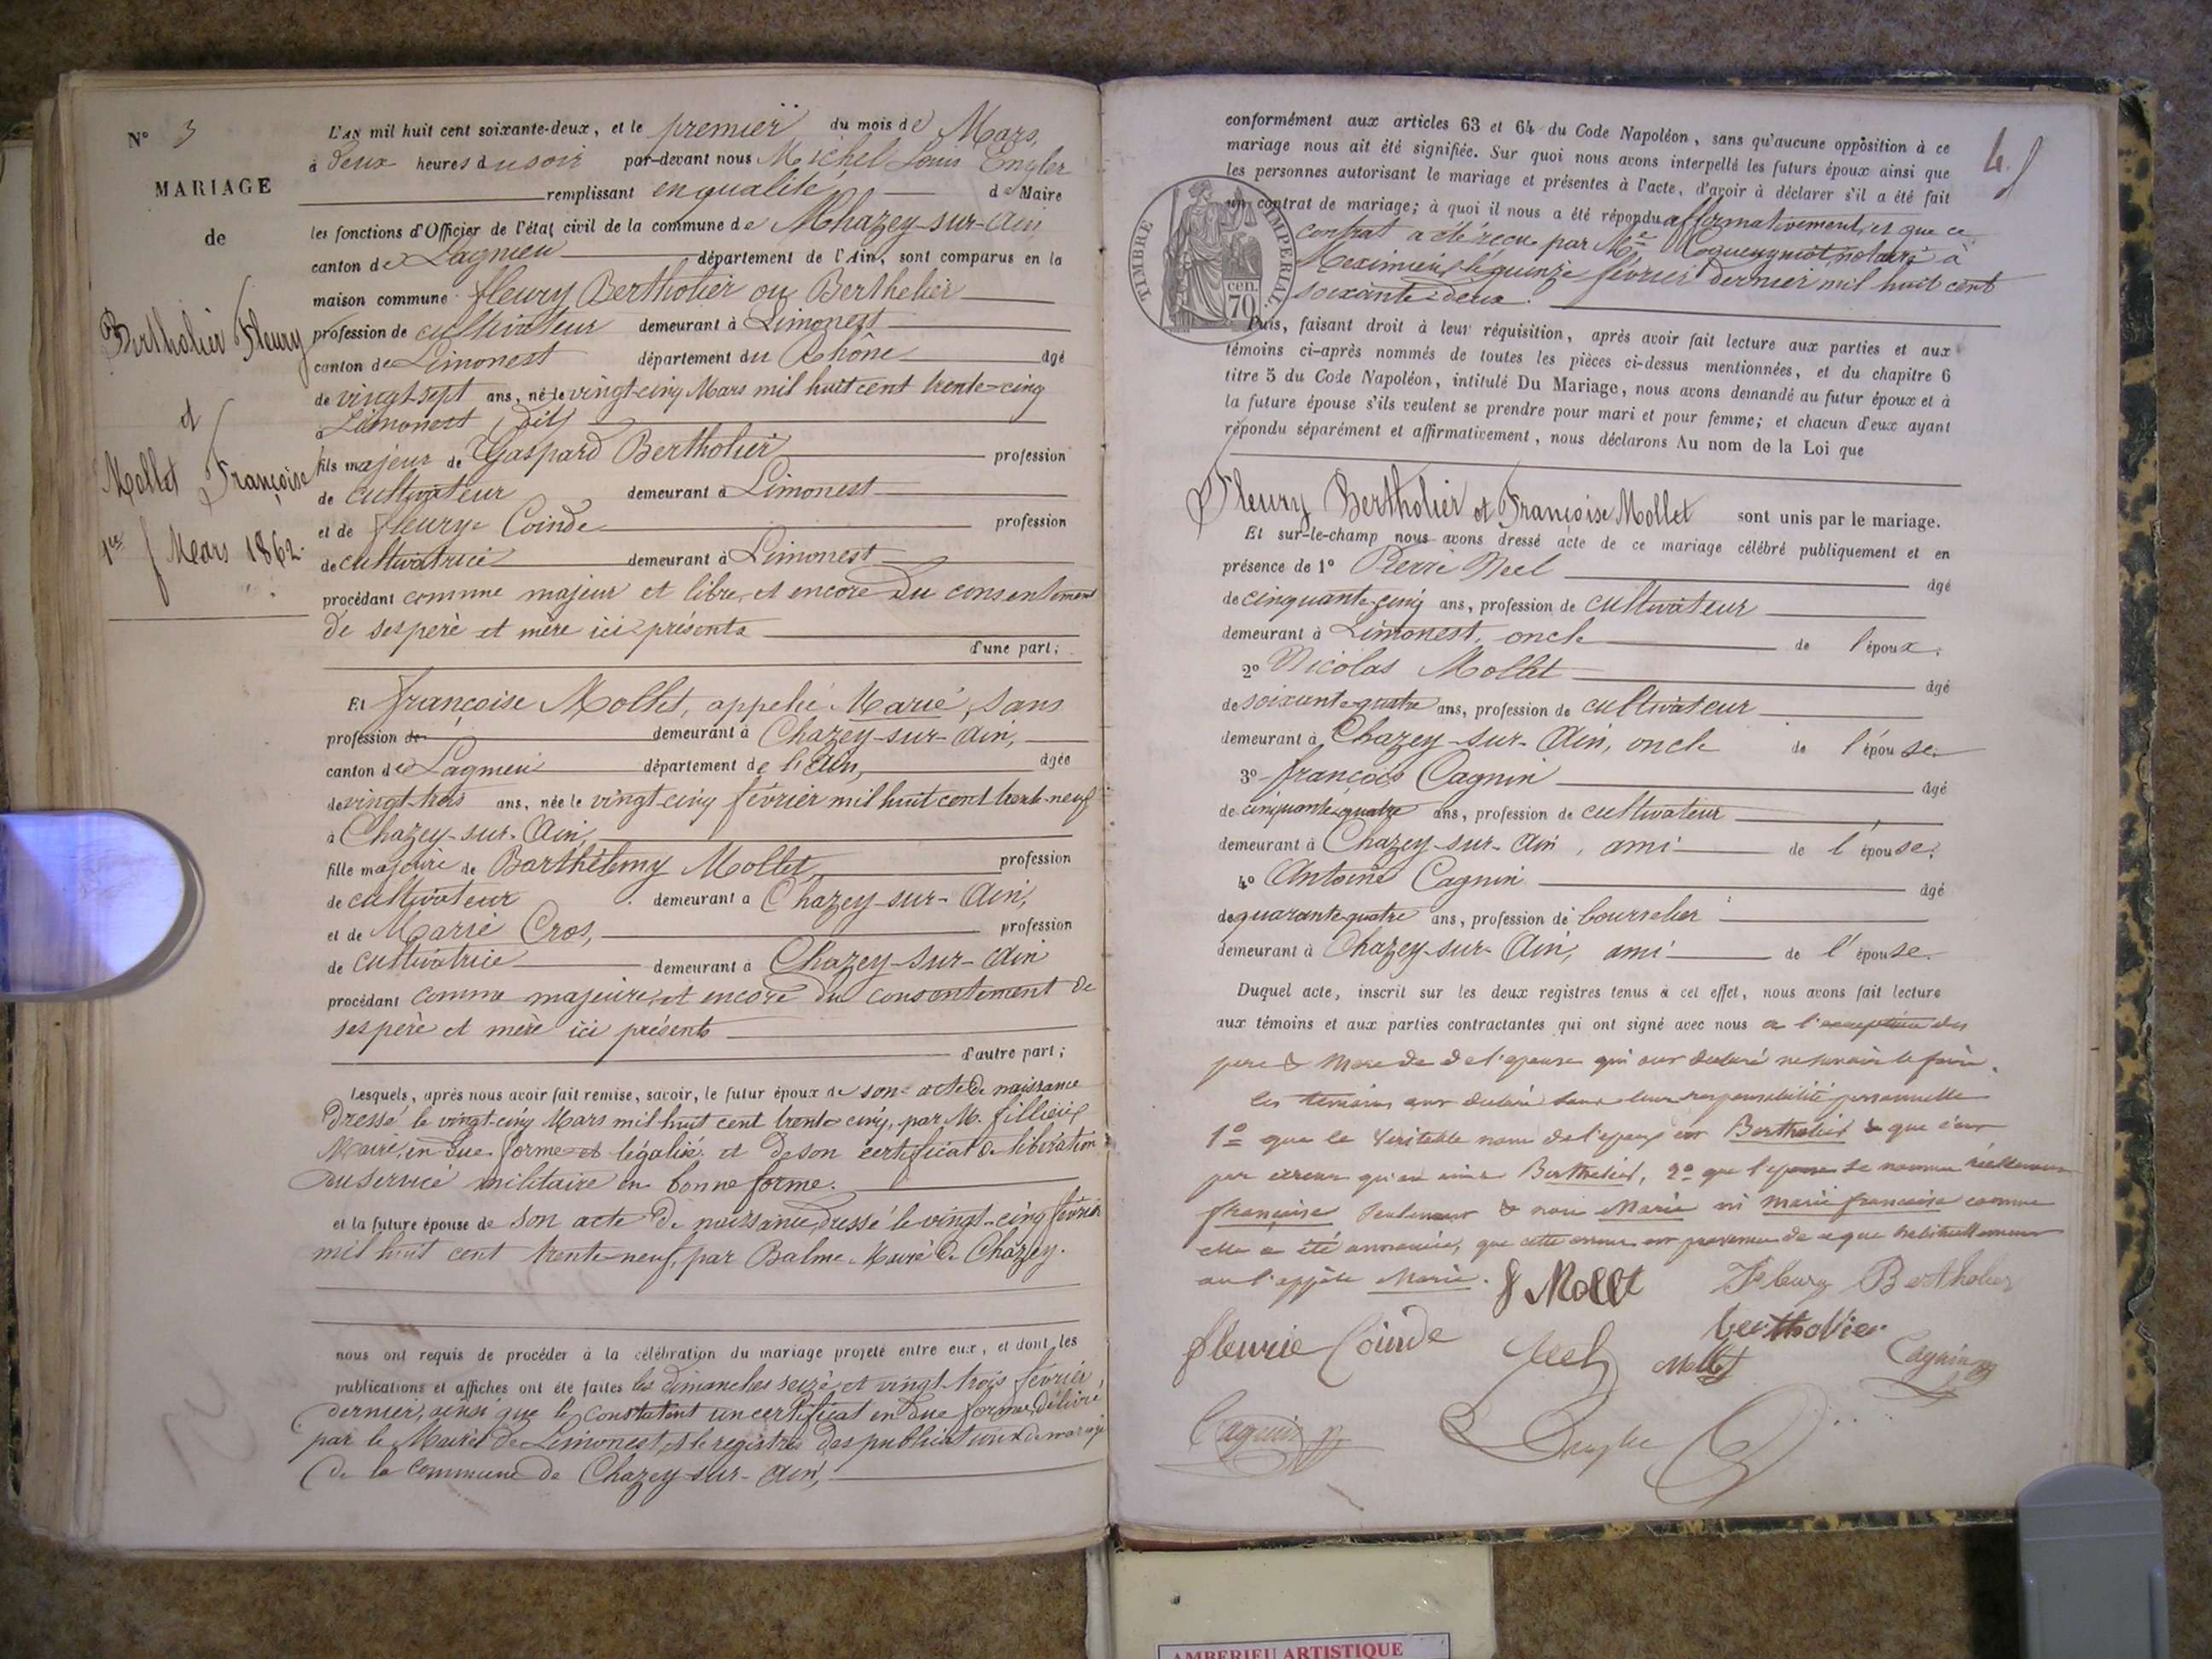 N° 3
MARIAGE
de
Bertholier Fleury
et
Mollet Françoise
1er Mars 1862.
L'AN mil huit cent soixante-deux, et le premier du mois de Mars,
à deux heures du soir par-devant nous Michel Louis Engler
remplissant en qualité de Maire
les fonctions d'Officier de l'état civil de la commune de Chazey-sur-Ain
canton de Lagnieu département de l'Ain, sont comparus en la
maison commune fleury Bertholier ou Berthelier
profession de cultivateur demeurant à Limonest
canton de Limonest département du Rhône âgé
de vingt-sept ans, né le vingt-cinq Mars mil huit cent trente-cinq
à Limonest, dit
fils majeur de Gaspard Bertholier profession
de cultivateur demeurant à Limonest
et de fleurye Coinde profession
de cultivatrice demeurant à Limonest
procédant comme majeur et libre, et encore du consentement
de ses père et mère ici présents
d'une part;
Et françoise Mollet, appelée Marie, sans
profession de demeurant à Chazey-sur-Ain,
canton de Lagnieu département de l'Ain, âgée
de vingt-trois ans, née le vingt-cinq février mil huit cent trente-neuf
à Chazey-sur-Ain,
fille majeure de Barthélemy Mollet, profession
de cultivateur demeurant à Chazey-sur-Ain,
et de Marie Cros, profession
de cultivatrice demeurant à Chazey-sur-Ain
procédant comme majeure, et encore du consentement de
ses père et mère ici présents
d'autre part;
Lesquels, après nous avoir fait remise, savoir, le futur époux de son acte de naissance
dressé le vingt-cinq Mars mil huit cent trente-cinq, par M. fillieux
Maire, en due forme et légalisé, et de son certificat de libération
du service militaire en bonne forme.
et la future épouse de son acte de naissance, dressé le vingt-cinq février
mil huit cent trente-neuf, par Balme Maire de Chazey.
nous ont requis de procéder à la célébration du mariage projeté entre eux, et dont les
publications et affiches ont été faites les dimanches seize et vingt-trois février,
dernier, ainsi que le constatent un certificat en due forme, délivré
par le Maire de Limonest, et le registre des publications de mariage
de la commune de Chazey-sur-Ain,
4
conformément aux articles 63 et 64 du Code Napoléon, sans qu'aucune opposition à ce
mariage nous ait été signifiée. Sur quoi nous avons interpellé les futurs époux ainsi que
les personnes autorisant le mariage et présentes à l'acte, d'avoir à déclarer s'il a été fait
un contrat de mariage; à quoi il nous a été répondu affirmativement, et que ce
contrat a été reçu par Me notaire à
Meximieux, le quinze février dernier mil huit cent
soixante-deux.
TIMBRE IMPERIAL
70 cen.
Puis, faisant droit à leur réquisition, après avoir fait lecture aux parties et aux
témoins ci-après nommés de toutes les pièces ci-dessus mentionnées, et du chapitre 6
titre 5 du Code Napoléon, intitulé Du Mariage, nous avons demandé au futur époux et à
la future épouse s'ils veulent se prendre pour mari et pour femme; et chacun d'eux ayant
répondu séparément et affirmativement, nous déclarons Au nom de la Loi que
Fleury Bertholier et Françoise Mollet sont unis par le mariage.
Et sur-le-champ nous avons dressé acte de ce mariage célébré publiquement et en
présence de 1° Pierre Neel âgé
de cinquante-cinq ans, profession de cultivateur
demeurant à Limonest, oncle de l'époux;
2° Nicolas Mollet âgé
de soixante-quatre ans, profession de cultivateur
demeurant à Chazey-sur-Ain, oncle de l'épouse;
3° françois Cagnin âgé
de cinquante-quatre ans, profession de cultivateur
demeurant à Chazey-sur-Ain, ami de l'épouse;
4° Antoine Cagnin âgé
de quarante-quatre ans, profession de bourrelier
demeurant à Chazey-sur-Ain, ami de l'épouse.
Duquel acte, inscrit sur les deux registres tenus à cet effet, nous avons fait lecture
aux témoins et aux parties contractantes qui ont signé avec nous a l'exception des
pere & Mere de de l'epouse qui ont declaré ne savoir le faire.
les temoins ont declaré sous leur responsabilité personnelle
1° que le veritable nom de l'epoux est Bertholier & que c'est
par erreur qu'on a Berthelier, 2° que l'epouse se nomme réellement
françoise seulement & non Marie ni marie françoise comme
elle a été annoncée, que cette erreur est provenue de ce que habituellement
on l'appele Marie.
f Mollet Fleury Bertholier
fleurie Coinde Neel bertholier
Mollet Cagnin
Cagnin Engler
AMBERIEU ARTISTIQUE